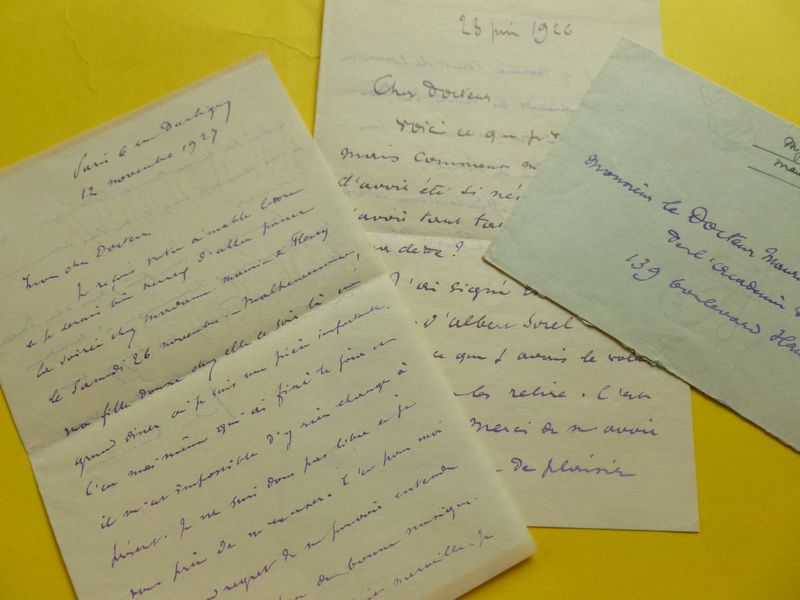 Paris 6 rue Dantigny
12 novembre 1927
Mon cher Docteur
Je reçois votre aimable lettre
et je serais très heureux d'aller passer
la soirée chez Madame Maurice de Fleury
le Samedi 26 novembre. Malheureusement,
ma fille donne chez elle ce soir là un
grand diner où je suis une pièce importante.
C'est moi-même qui ai fixé le jour et
il m'est impossible d'y rien changer à
présent. Je ne suis donc pas libre et je
vous prie de m'excuser. C'est pour moi
regret de ne pouvoir entendre
de bonne musique.
merveille. Je
23 juin 1926
Cher Docteur
Voici ce que
mais comment
d'avoir été si
d'avoir tant
dette ?
J'ai signé
d'Albert Sorel
ce que j'avais
les retire. C'est
Merci de m'avoir
de plaisir
Monsieur le Docteur Maur
de l'Académie
139 boulevard Hau